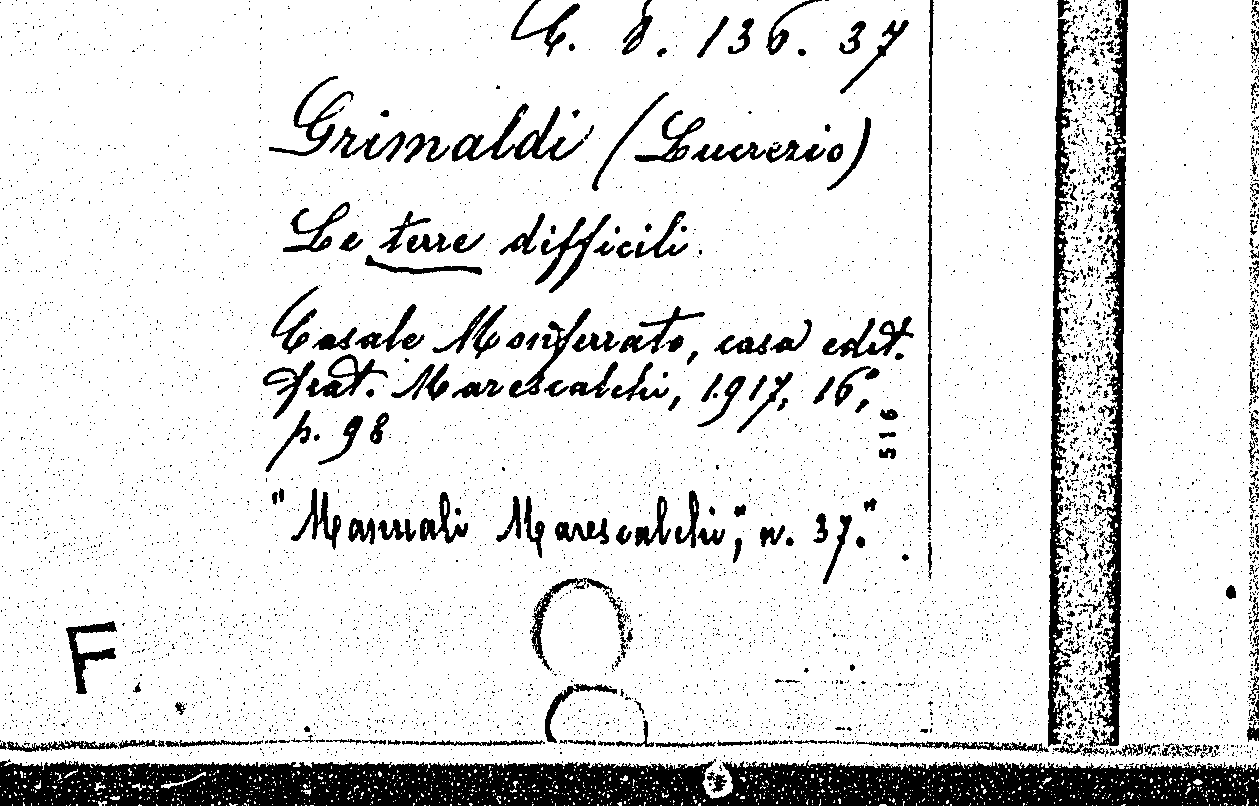 C. d. 136. 37
Grimaldi (Lucrezio)
Le terre difficili.
Casale Monferrato, casa edit.
frat. Marescalchi, 1917, 16°,
p. 98
516
"Manuali Marescalchi", n. 37."
F.